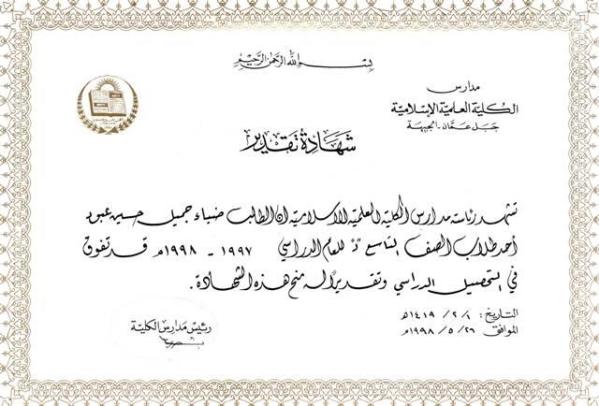 بسم الله الرحمن الرحيم
مدارس
الكلية العلمية الإسلامية
جبل عمان - الجبيهة
شهادة تقدير
تشهد رئاسة مدارس الكلية العلمية الاسلامية ان الطالب ضياء جميل حسين عبود
أحد طلاب الصف التاسع للعام الدراسي ١٩٩٧ - ١٩٩٨م قد تفوق
في التحصيل الدراسي وتقديرًا له منح هذه الشهادة.
التاريخ: ١٤١٩/٢/١هـ
الموافق ١٩٩٨/٥/٢٦م
رئيس مدارس الكلية